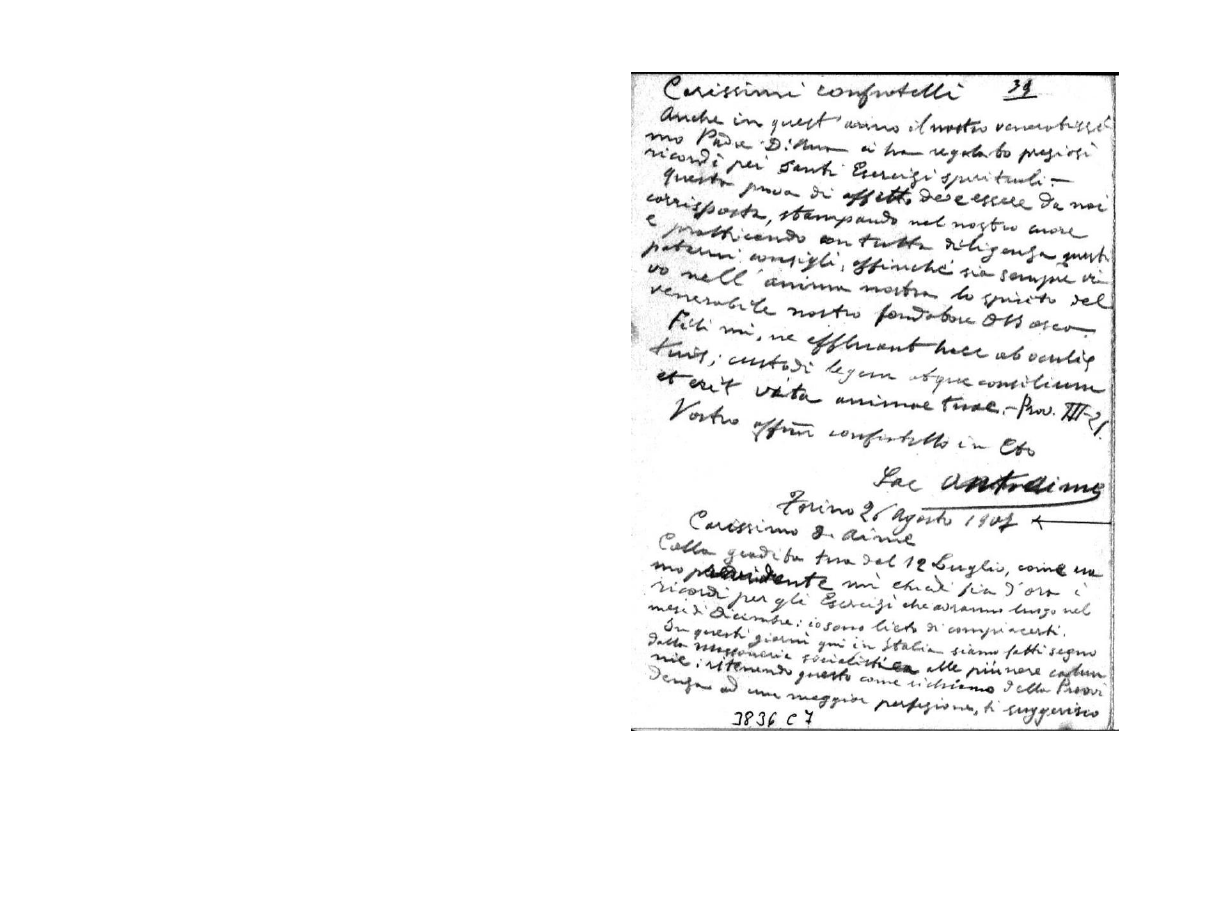 39
Carissimi confratelli
Anche in quest'anno il nostro venerabissi
mo Padre D. Rua ci ha regalato preziosi
ricordi pei Santi Esercizi spirituali. —
Questa prova di affetto deve essere da noi
corrisposta, stampando nel nostro cuore
e pratticando con tutta diligenza questi
paterni consigli, affinchè sia sempre vi
vo nell'anima nostra lo spirito del
venerabile nostro fondatore D Bosco.
Fili mi, ne effluant haec ab oculis
tuis; custodi legem atque consilium
et erit vita animae tuae. — Prov. III-21.
Vostro affmo confratello in
Sac
Torino 26 Agosto 1907
Carissimo D. Aime
Colla gradita tua del 12 Luglio, come uo
mo previdente mi chiedi fin d'ora i
ricordi per gli Esercizi che avranno luogo nel
mese di Dicembre; io sono lieto di compiacerti.
In questi giorni qui in Italia siamo fatti segno
dalla massoneria socialistica alle più nere calun
nie; ritenendo questo come richiamo della Provvi
denza ad una maggior perfezione, ti suggerisco
3836 C 7